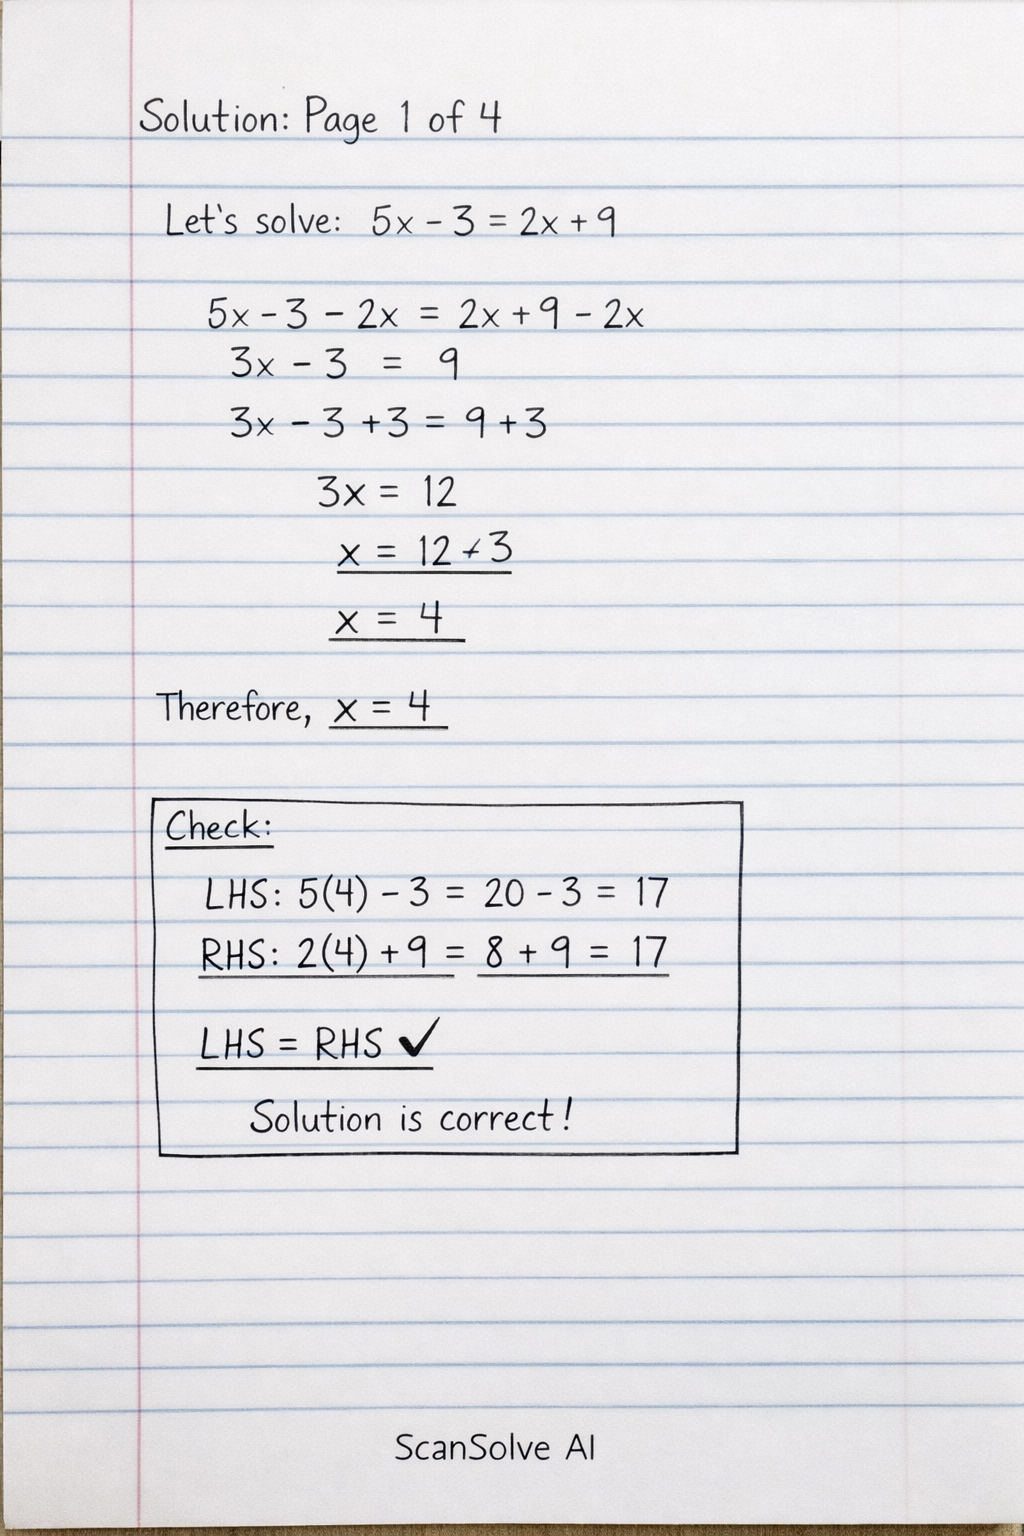 Solution: Page 1 of 4
Let's solve: 5x - 3 = 2x + 9
5x - 3 - 2x = 2x + 9 - 2x
3x - 3 = 9
3x - 3 + 3 = 9 + 3
3x = 12
x = 12 ÷ 3
x = 4
Therefore, x = 4
Check:
LHS: 5(4) - 3 = 20 - 3 = 17
RHS: 2(4) + 9 = 8 + 9 = 17
LHS = RHS ✓
Solution is correct!
ScanSolve AI